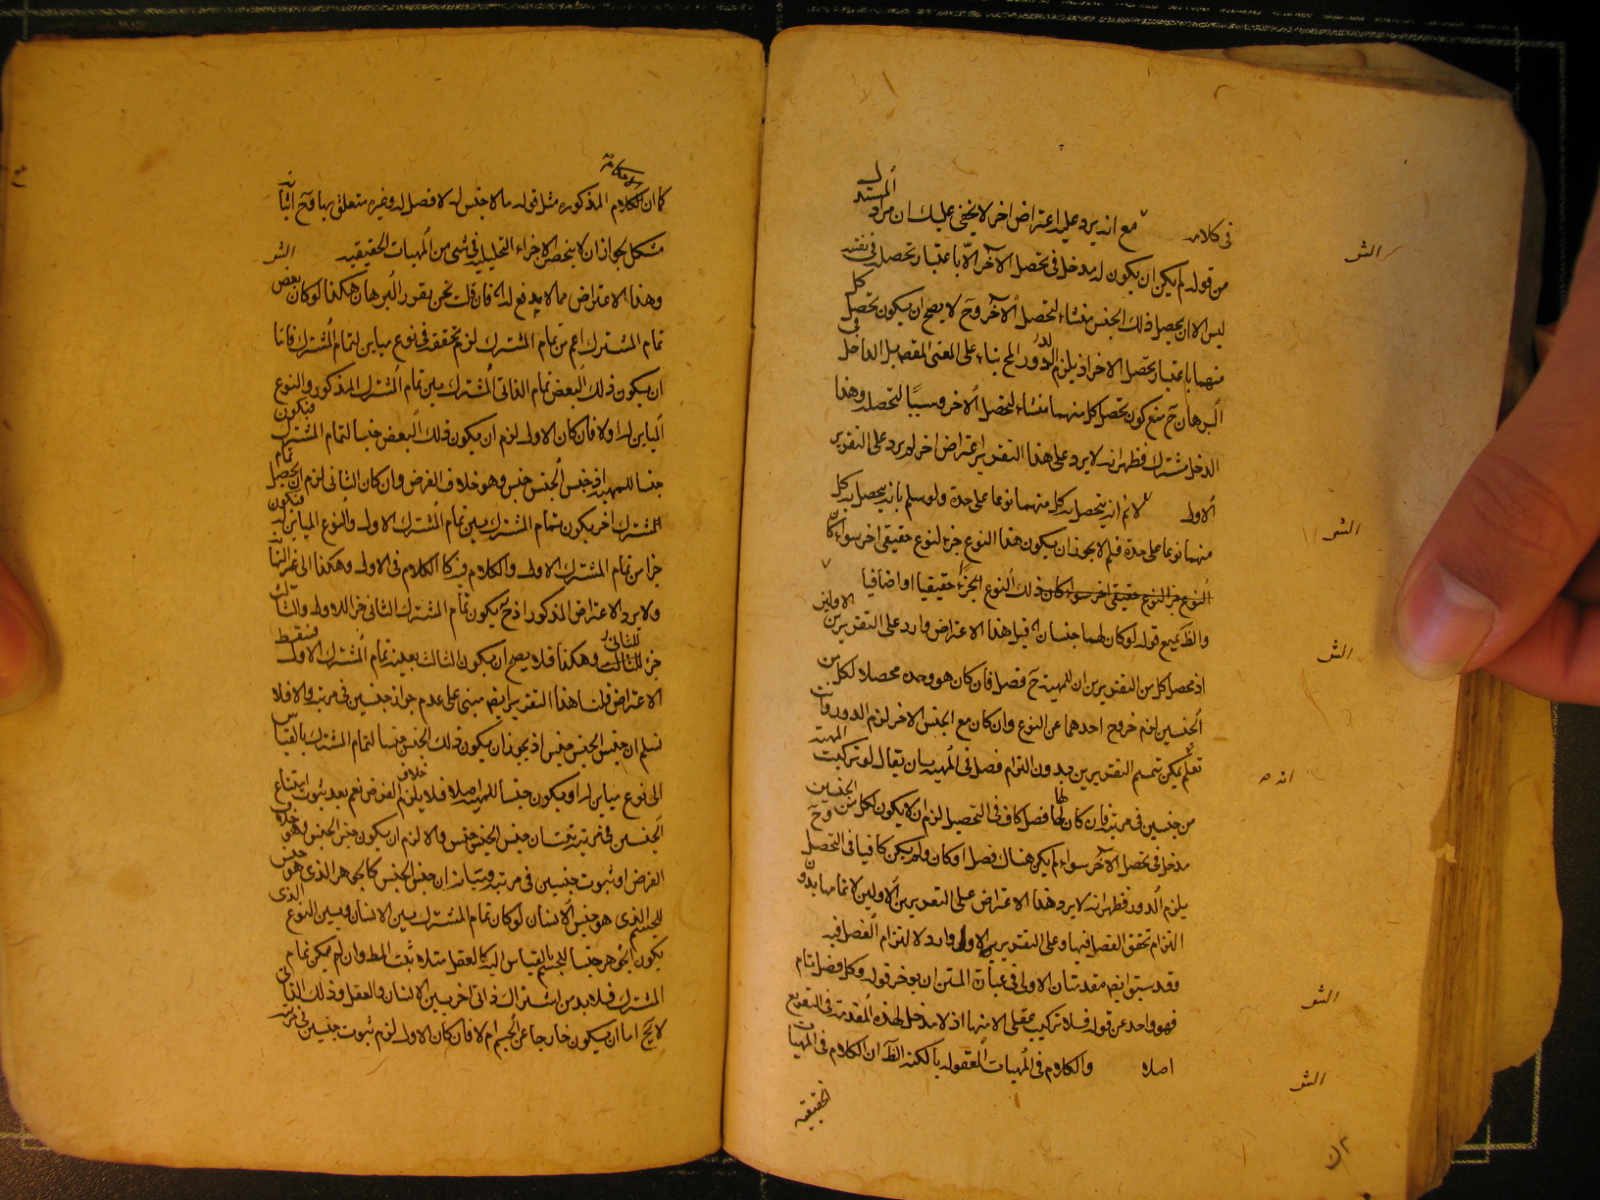 فى كلامه مع انه يرد عليه اعتراض اخر لا يخفى عليك ان مراد المستدل
من قوله لم يكن ان يكون له مدخل فى تحصل الآخر الا باعتبار تحصله فى نفسه
ليس الا ان يحصل ذلك الجنس منشاء لتحصل الآخر وح لا يصح ان يكون تحصل كل
منهما باعتبار تحصل الاخر اذ يلزم الدور المح بناء على المعنى المقصد بل الداخل فى
البرهان ح منع كون تحصل كل منهما منشاء لتحصل الاخر وسببا لتحصله وهذا
الدخل مشترك فظهر انه لا يرد على هذا التقرير اعتراض اخر لم يرد على التقرير
الاول لا نم انه يتحصل بكل منهما نوعا على حدة ولو سلم بانه يحصل بكل
منهما نوعا على حدة فلم لا يجوز ان يكون هذا النوع جزء لنوع حقيقى اخر سواء كان
النوع جزء لنوع حقيقى اخر سواء كان ذلك النوع الجزء حقيقيا او اضافيا
قوله لو كان لهما جنسان قيل هذا الاعتراض وارد على التقريرين الاولين
اذ محصل كل من التقريرين ان للمهية ح فصل فان كان هو وحده محصلا لكل من
الجنسين لزم خروج احدهما عن النوع وان كان مع الجنس الاخر لزم الدور
نعم يمكن تتميم التقريرين بدون التزام فصل فى المهية بان يقال لو تركبت المهية
من جنسين فى مرتبة فان كان لها فصل كاف فى التحصيل لزم ان لا يكون لكل من الجنسين
مدخل فى تحصل الآخر سواء لم يكن هناك فصل او كان ولم يكن كافيا فى التحصل وح
يلزم الدور فظهر انه لا يرد هذا الاعتراض على التقريرين الاولين لاتمامهما بدون
التزام تحقق الفصل فيها وعلى التقرير الاول وارد لالتزام الفصل فيه
وقد سبق ايضا مقدمتان الاولى فى عبارة المتن ان يوخر قوله وكل فصل تام
فهو واحد عن قوله فلا تركيب عقلى الا منها اذ لا مدخل لهذه المقدمة فى التفريع
اصلا والكلام فى المهيات المعقولة بالكنه الظ ان الكلام فى المهيات
الحقيقية
الش
الش
الش
انه
الش
الش
كما ان الكلام المذكورة مثل قوله ما لا جنس له لا فصل له وغيره متعلق بها وح
مشكل لجواز ان لا ينحصر الاجزاء التحليلية فى شئ من المهيات الحقيقية الش
وهذا الاعتراض مما لا يدفع له فان قلت نحن نقرر البرهان هكذا لو كان بعض
تمام المشترك اعم من تمام المشترك لزم تحققه فى نوع مباين لتمام المشترك فاما
ان يكون ذلك البعض تمام الذاتى المشترك بين تمام المشترك المذكور والنوع
المباين له اولا فان كان الاول لزم ان يكون ذلك البعض جنسا لتمام المشترك فيكون
جنسا للمهية اذ جنس الجنس جنس وهو خلاف الفرض وان كان الثانى لزم ان يحصل تمام
المشترك اخر يكون تمام المشترك بين تمام المشترك الاول والنوع المباين له فيكون
جزا من تمام المشترك الاول والكلام فيه كالكلام فى الاول وهكذا الى غير النهاية
ولا يرد الاعتراض المذكور اذ ح يكون تمام المشترك الثانى جزا للاول والثالث
جزء للثانى وهكذا فلا يصح ان يكون الثالث بعينه تمام المشترك الاول فسقط
الاعتراض قلنا هذا التقرير ايضا مبنى على عدم جواز جنسين فى مرتبة والا فلا
نسلم ان جنس الجنس جنس اذ يجوز ان يكون ذلك الجنس جنسا لتمام المشترك بالقياس
الى نوع مباين له او يكون جنسا للمهية اصلا فلا يلزم خلاف الفرض نعم بعد ثبوت امتناع
الجنسين فى مرتبة يثبت ان جنس الجنس جنس والا لزم ان يكون جنس الجنس وهو خلاف
الفرض او ثبوت جنسين فى مرتبة وبيانه ان جنس الجنس كالجوهر الذى هو جنس
للجسم الذى هو جنس الانسان لو كان تمام المشترك بين الانسان وبين النوع الذى
يكون الجوهر جنسا للجسم بالقياس اليه كالعقل مثلا ثبت المط وان لم يكن تمام
المشترك فلا بد من اشتراك ذاتى اخر بين الانسان والعقل وذلك الذاتى
لا يخ اما ان يكون خارجا عن الجسم ام لا فان كان الاول لزم ثبوت جنسين فى مرتبة